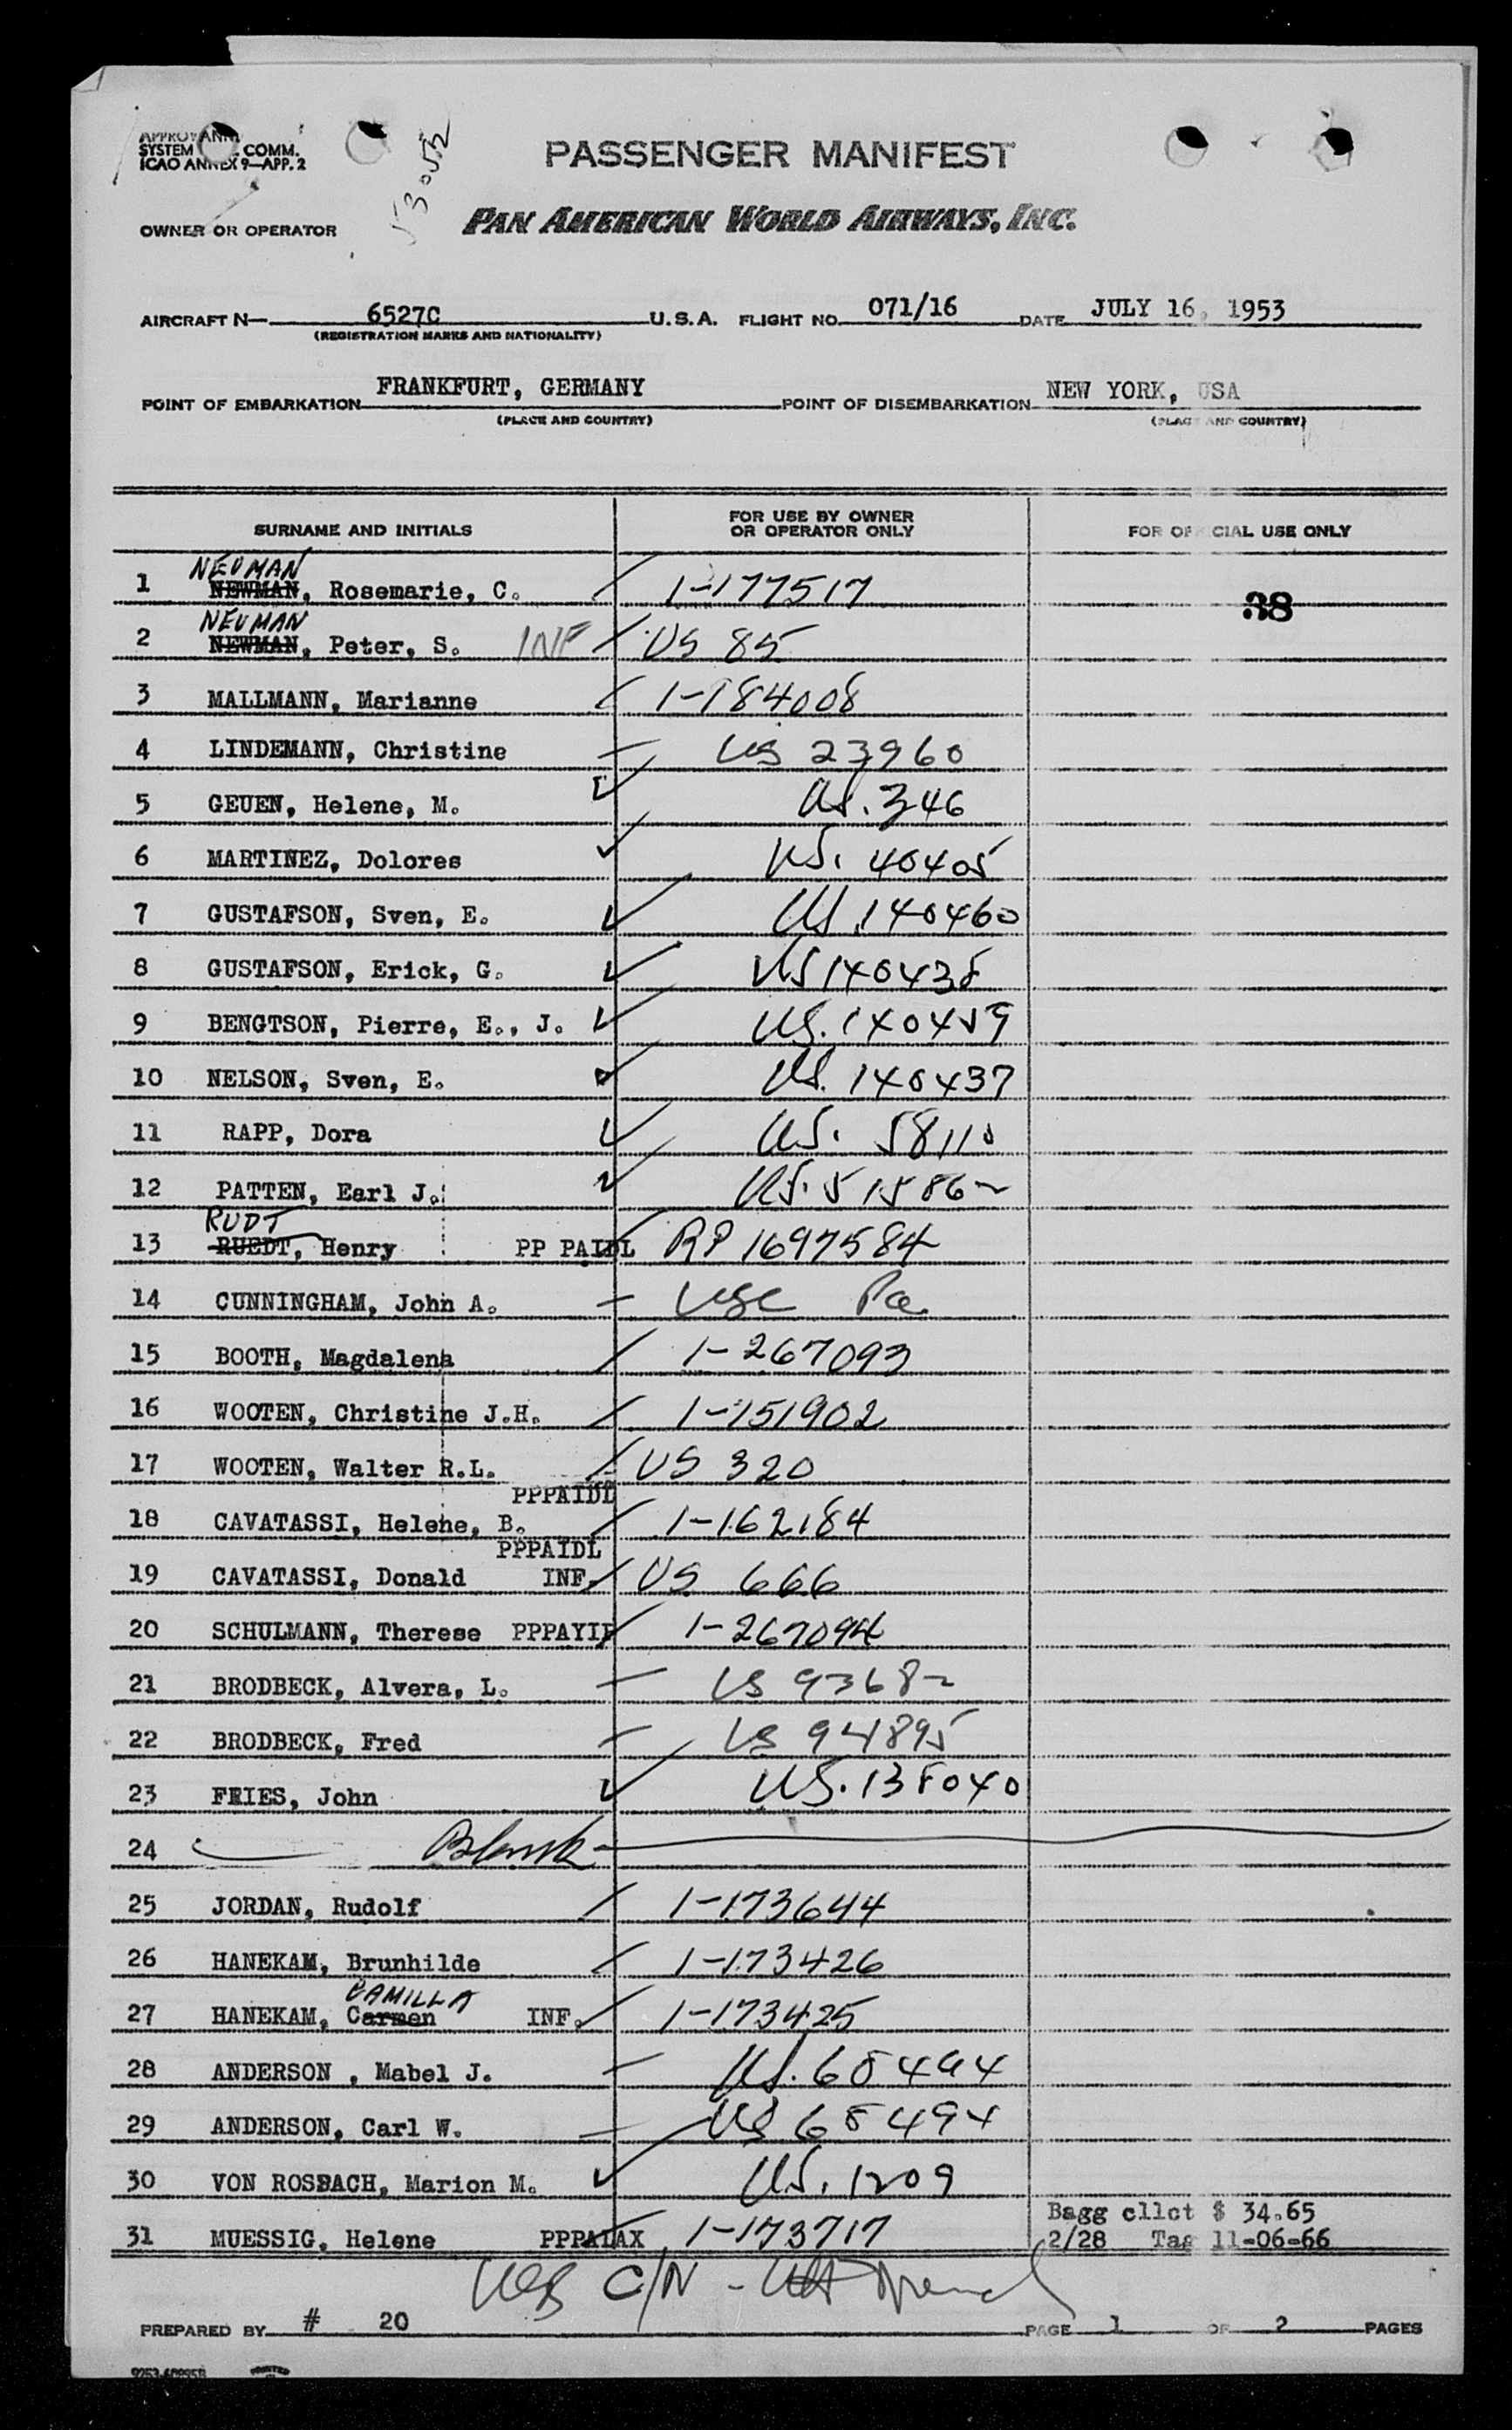 APPROV
SYSTEM COMM.
ICAO ANNEX 9—APP. 2
53052
PASSENGER MANIFEST
OWNER OR OPERATOR
PAN AMERICAN WORLD AIRWAYS, INC.
AIRCRAFT N— 6527C U.S.A. FLIGHT NO. 071/16 DATE JULY 16, 1953
(REGISTRATION MARKS AND NATIONALITY)
POINT OF EMBARKATION FRANKFURT, GERMANY POINT OF DISEMBARKATION NEW YORK, USA
(PLACE AND COUNTRY) (PLACE AND COUNTRY)
SURNAME AND INITIALS FOR USE BY OWNER OR OPERATOR ONLY FOR OFFICIAL USE ONLY
NEUMAN
1 NEWMAN, Rosemarie, C. 1-177517 38
NEUMAN
2 NEWMAN, Peter, S. INF US 85
3 MALLMANN, Marianne 1-184008
4 LINDEMANN, Christine US 23960
5 GEUEN, Helene, M. US. 346
6 MARTINEZ, Dolores US. 40405
7 GUSTAFSON, Sven, E. US. 140460
8 GUSTAFSON, Erick, G. US 140438
9 BENGTSON, Pierre, E., J. US. 140459
10 NELSON, Sven, E. US. 140437
11 RAPP, Dora US. 58110
12 PATTEN, Earl J. US. 515862
RUDT
13 RUEDT, Henry PP PAIDL RP 1697584
14 CUNNINGHAM, John A. USC
15 BOOTH, Magdalena 1-267093
16 WOOTEN, Christine J.H. 1-151902
17 WOOTEN, Walter R.L. US 320
PPPAIDL
18 CAVATASSI, Helene, B. 1-162184
PPPAIDL
19 CAVATASSI, Donald INF. US 666
20 SCHULMANN, Therese PPPAYIF 1-267094
21 BRODBECK, Alvera, L. US 93682
22 BRODBECK, Fred US 94895
23 FRIES, John US. 138040
24 Blank
25 JORDAN, Rudolf 1-173644
26 HANEKAM, Brunhilde 1-173426
CAMILLA
27 HANEKAM, Carmen INF. 1-173425
28 ANDERSON , Mabel J. US. 68494
29 ANDERSON, Carl W. US 68494
30 VON ROSBACH, Marion M. US. 1209
Bagg cllct $ 34.65
31 MUESSIG, Helene PPPALAX 1-173717 2/28 Tag 11-06-66
C/N -
PREPARED BY # 20 PAGE 1 OF 2 PAGES